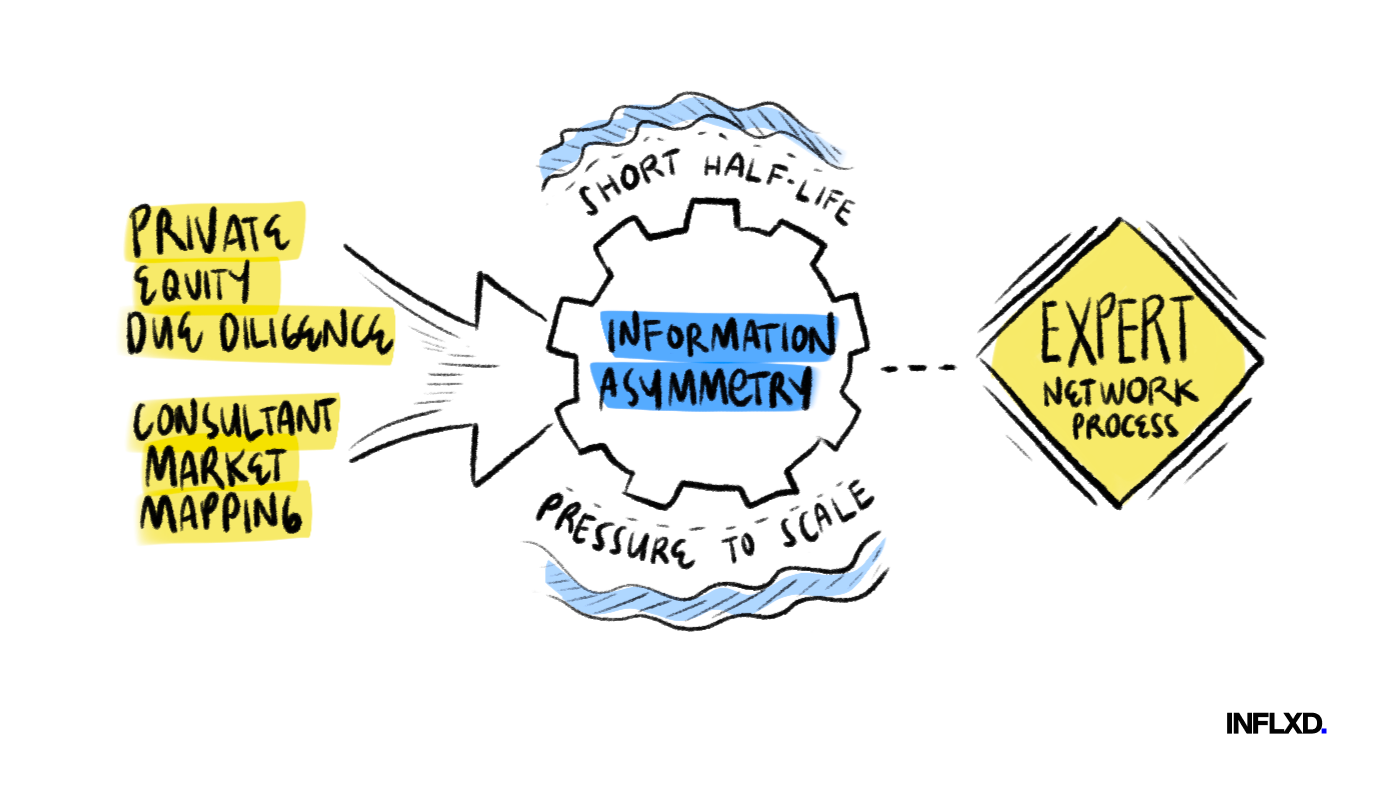 PRIVATE
EQUITY
DUE DILIGENCE
CONSULTANT
MARKET
MAPPING
SHORT HALF-LIFE
INFORMATION
ASYMMETRY
PRESSURE TO SCALE
EXPERT
NETWORK
PROCESS
INFLXD.